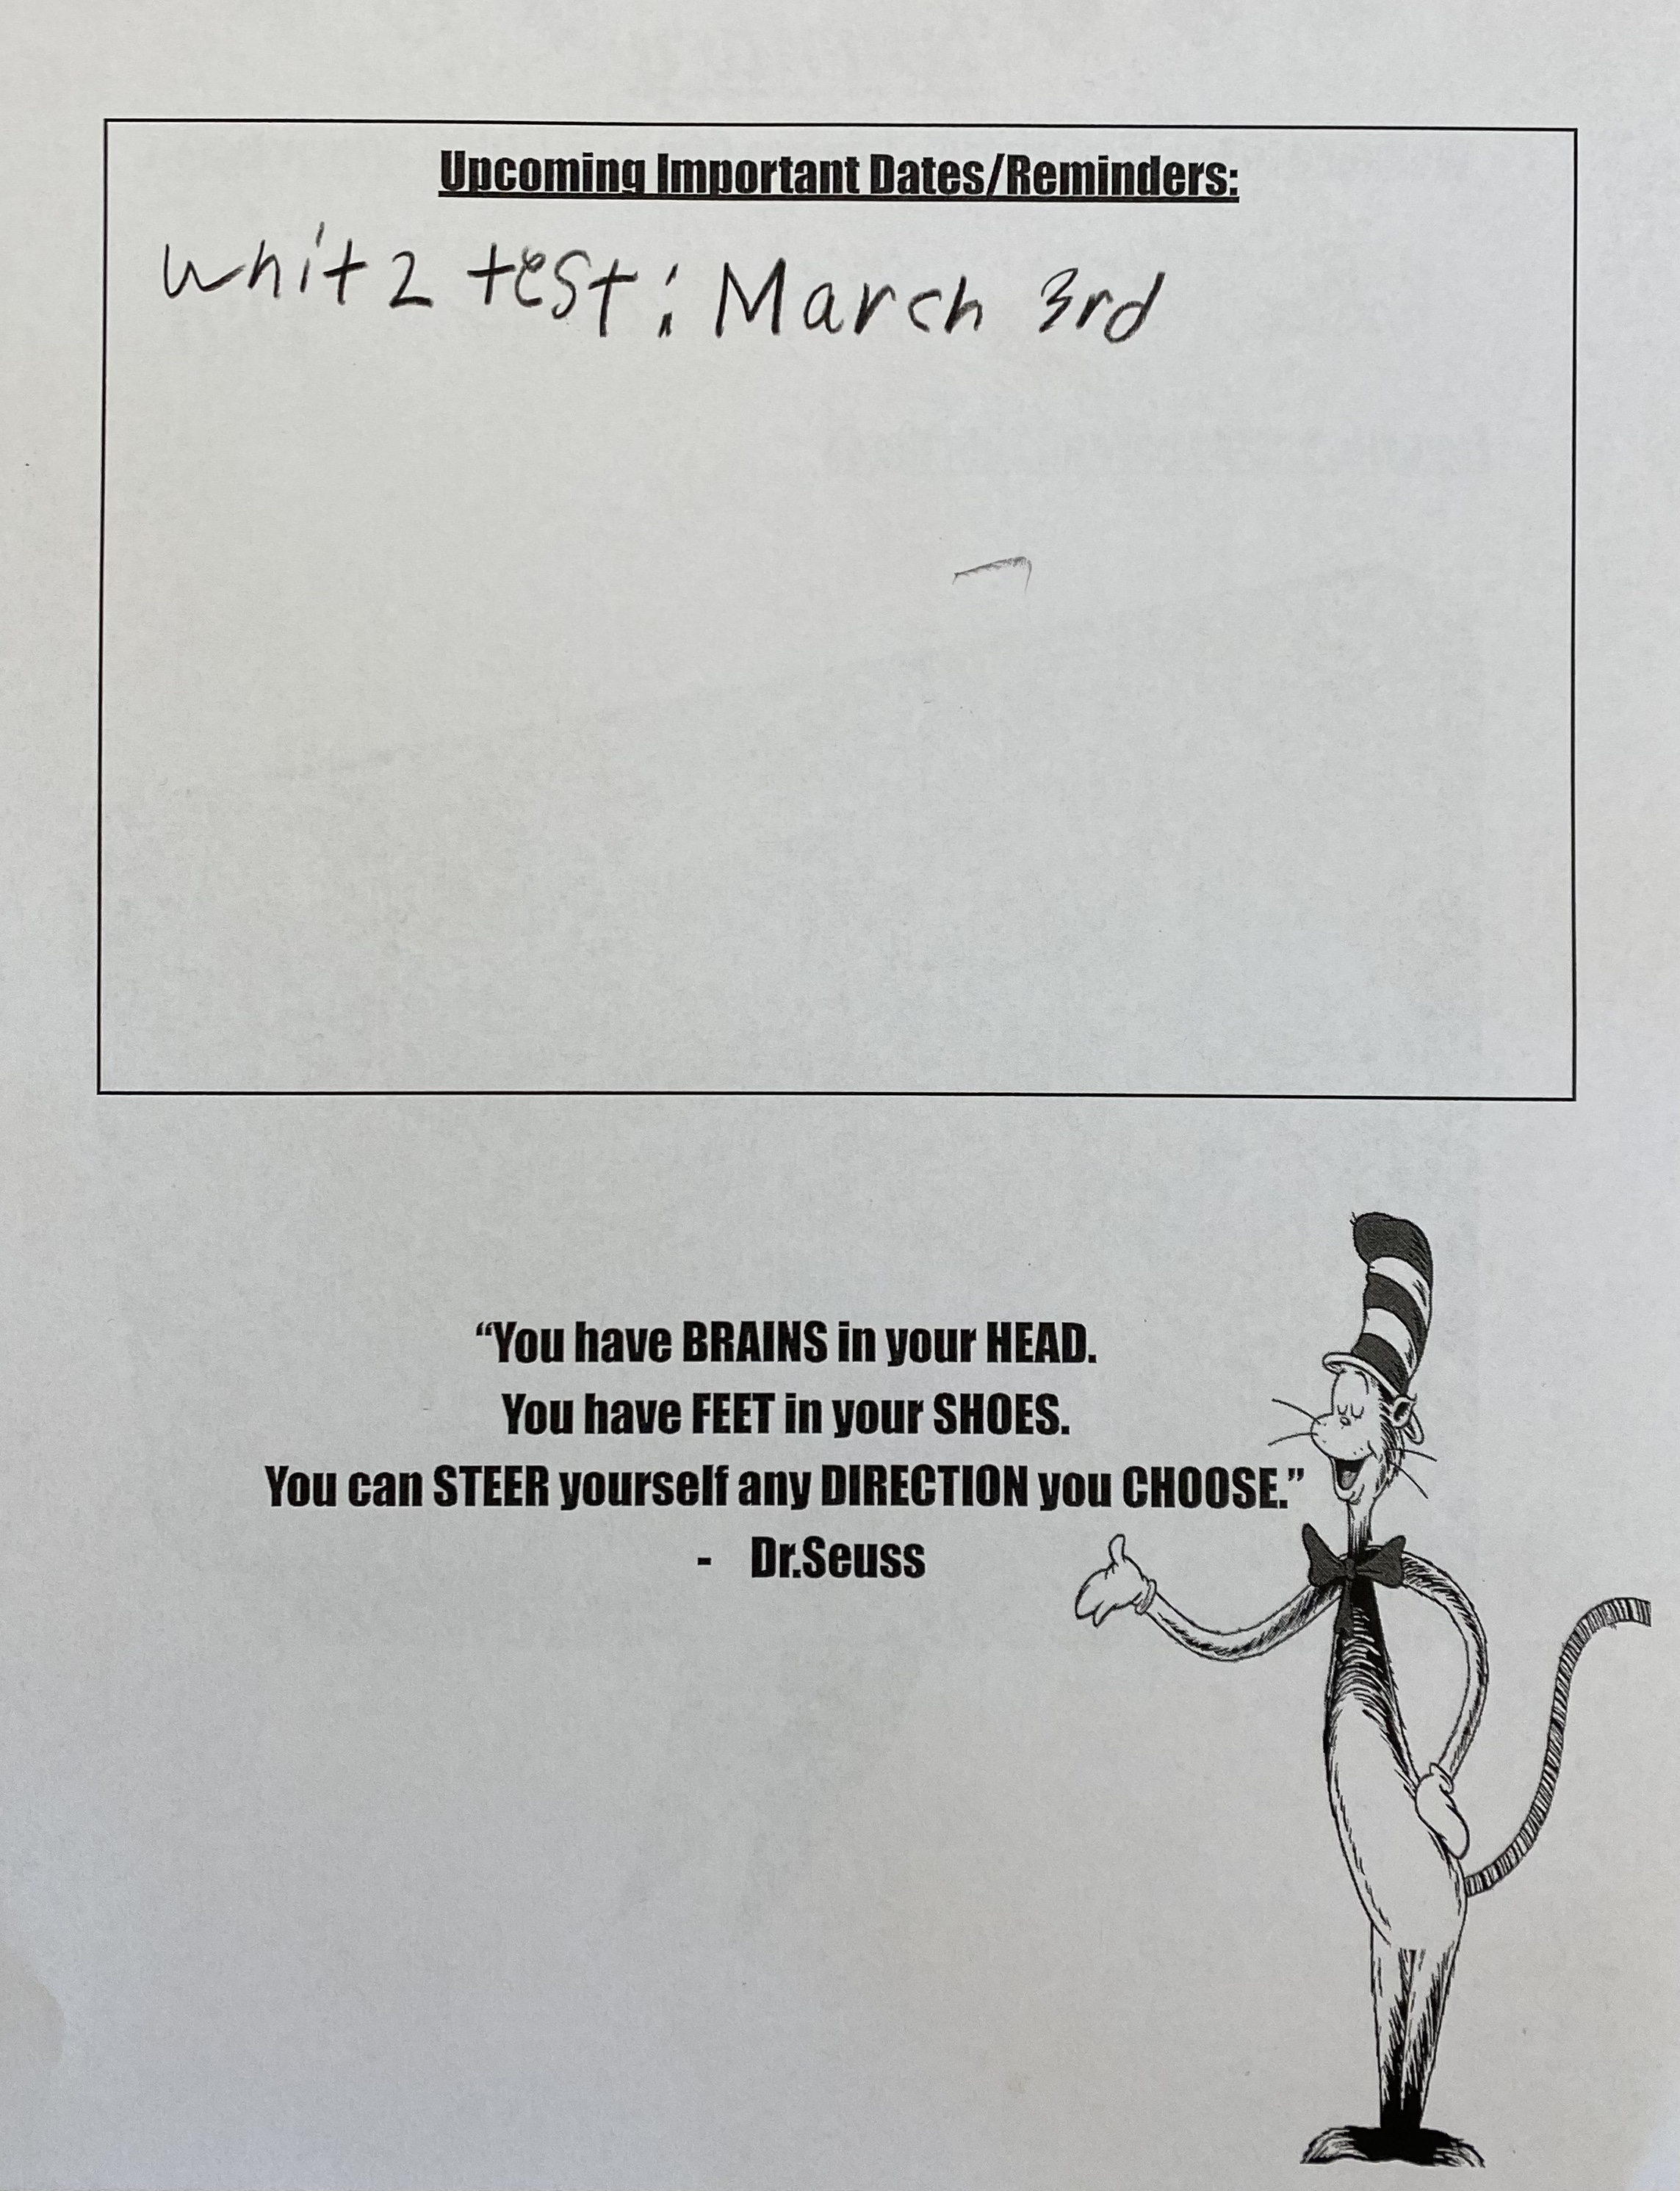 Upcoming Important Dates/Reminders:
Unit 2 test: March 3rd
“You have BRAINS in your HEAD.
You have FEET in your SHOES.
You can STEER yourself any DIRECTION you CHOOSE.”
- Dr.Seuss